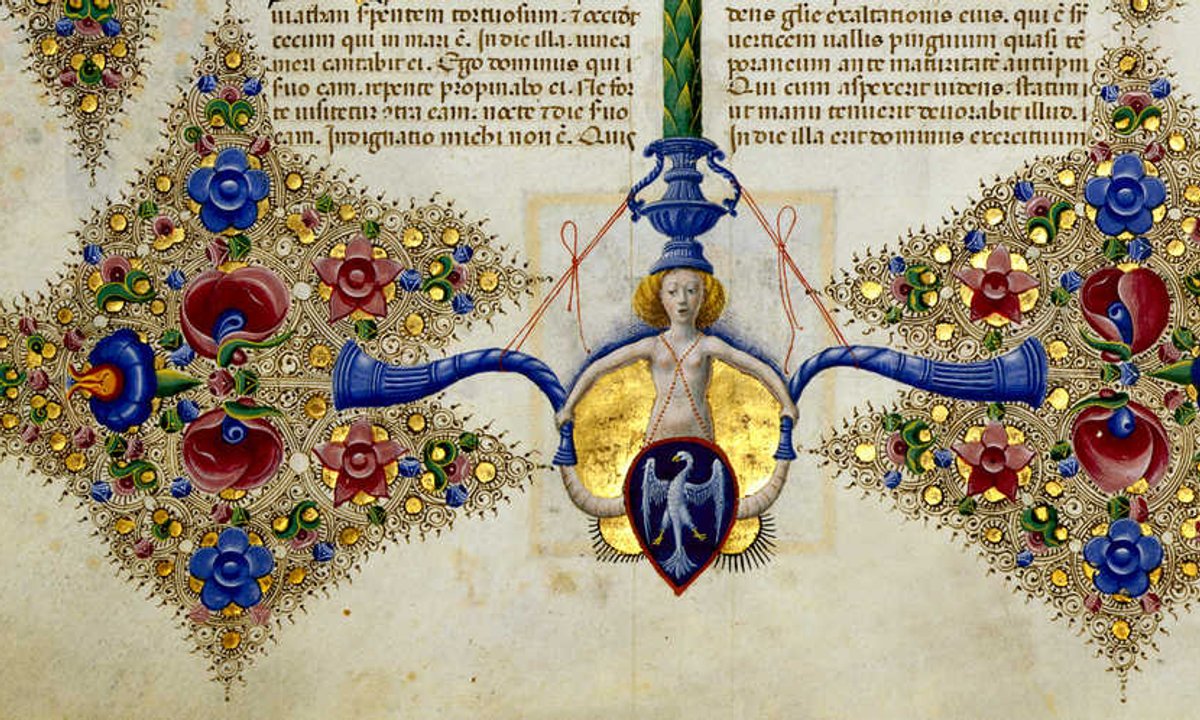 uiathan spentem tortuosum. ⁊ occidet
cecum qui in mari ē. In die illa. uinea
meri cantabit ei. Ego dominus qui s
suo eam. repente propinabo ei. Ne for
te uisitetur ɔtra eam. nocte ⁊ die suo
eam. Indignatio michi non ē. Quis
dens glīe exaltationis eius. qui ē
uerticem uallis pinguium quasi tē
poraneum ante maturitatē autūpni
Qui cum aspexerit uidens. statim
ut manu tenuerit deuorabit illud.
In die illa erit dominus exercituum